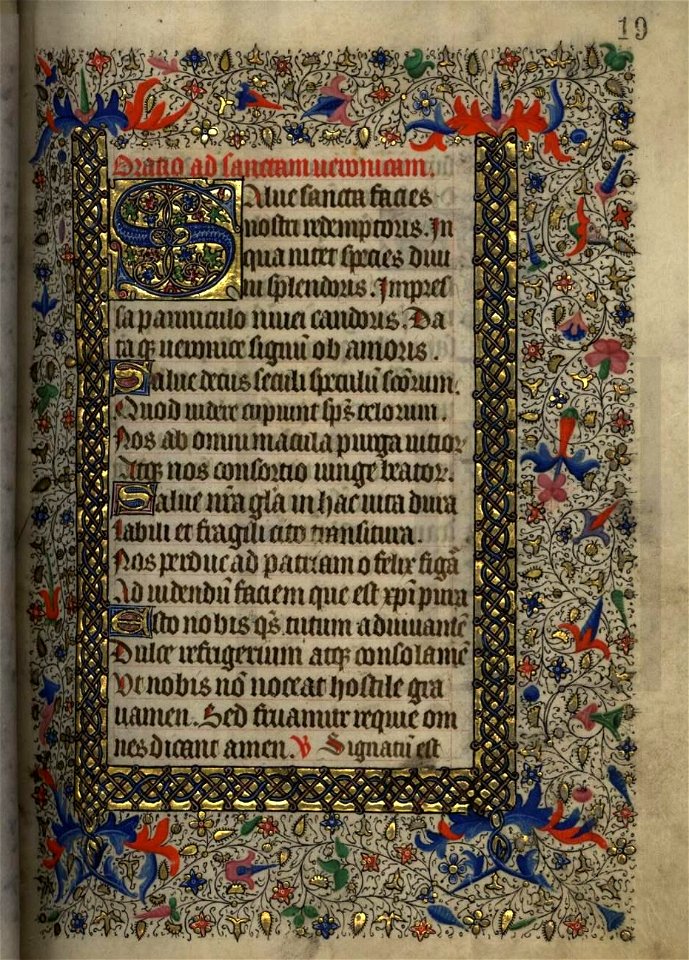 19
Oratio ad sanctam ueronicam.
Salue sancta facies
nostri redemptoris. In
qua nitet species diui
ni splendoris. Impres
sa panniculo niuei candoris. Da
taq̄ ueronice signū ob amoris.
Salue decus seculi speculū sc̄orum.
Quod uidere cupiunt sp̄s celorum.
Nos ab omni macula purga uitior
Atq̄ nos consortio iunge beator.
Salue nr̄a gl̄a in hac uita dura
labili et fragili cito transitura.
Nos perduc ad patriam o felix figā
Ad uidendū faciem que est xp̄i pura
Esto nobis q̄s tutum adiuuamē
Dulce refrigerium atq̄ consolamē
Ut nobis nō noceat hostile gra
uamen. Sed fruamur requie om
nes dicant amen. V Signatū est